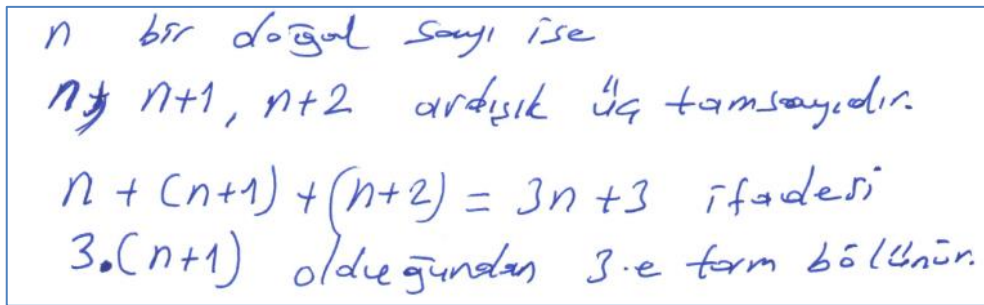 n bir doğal sayı ise
n, n+1, n+2 ardışık üç tamsayıdır.
n + (n+1) + (n+2) = 3n + 3 ifadesi
3.(n+1) olduğundan 3.e tam bölünür.